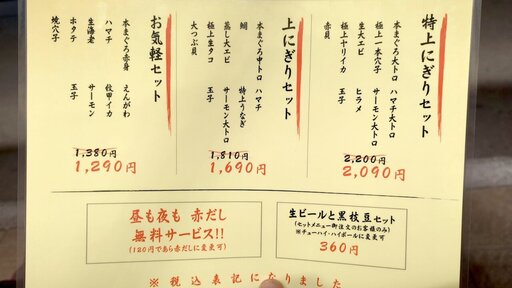 特上にぎりセット
本まぐろ大トロ ハマチ大トロ
生大エビ サーモン大トロ
極上一本穴子 ヒラメ
極上ヤリイカ 玉子
赤貝
2,200円
2,090円
上にぎりセット
本まぐろ中トロ ハマチ
鯛 特上うなぎ
蒸し大エビ サーモン大トロ
極上生タコ 玉子
大つぶ貝
1,810円
1,690円
お気軽セット
本まぐろ赤身 えんがわ
ハマチ 紋甲イカ
生海老 サーモン
ホタテ 玉子
焼穴子
1,380円
1,290円
昼も夜も 赤だし
無料サービス!!
(120円であら赤だしに変更可)
生ビールと黒枝豆セット
(セットメニュー御注文のお客様のみ)
※チューハイ・ハイボールに変更可
360円
※ 税込表記になりました